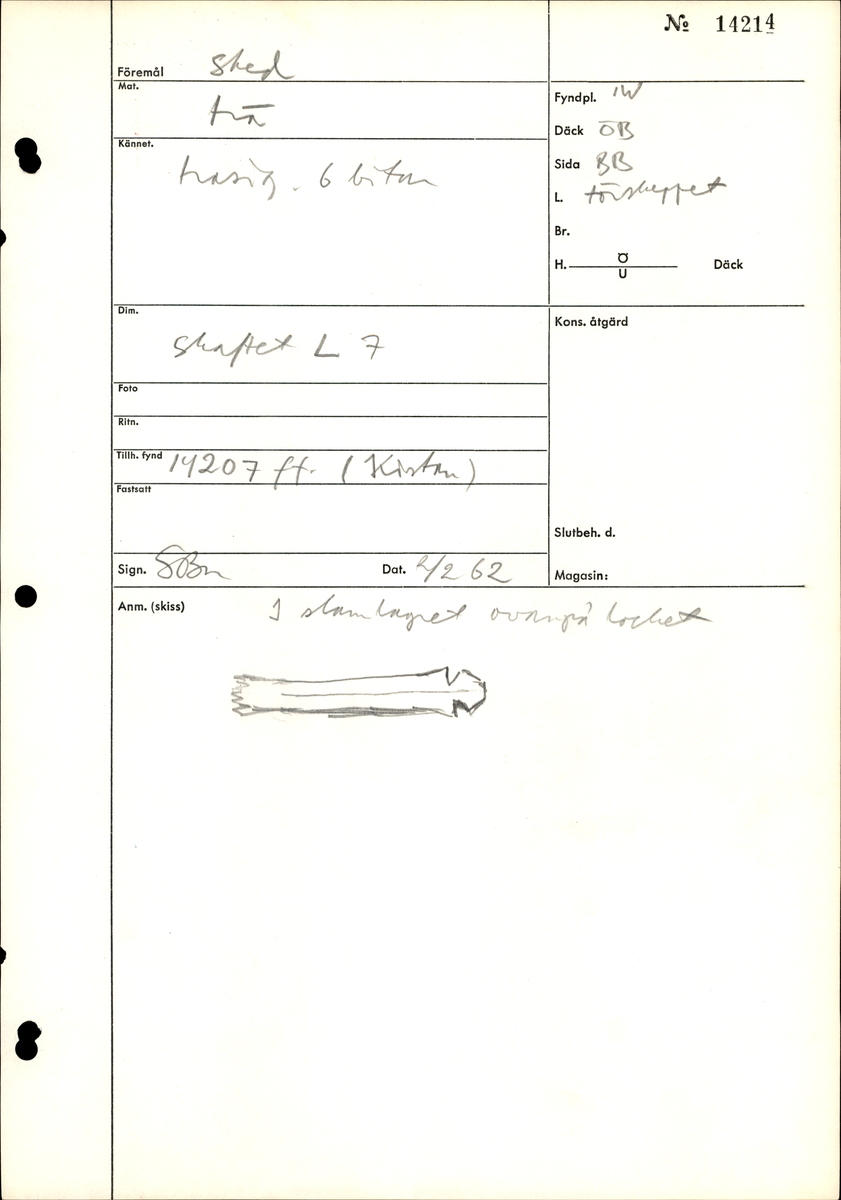 № 14214
Föremål sked
Mat. trä
Kännet. trasig. 6 bitar
Fyndpl. IW
Däck ÖB
Sida BB
L. förskeppet
Br.
H. Ö Däck
U
Dim. skaftet L 7
Kons. åtgärd
Foto
Ritn.
Tillh. fynd 14207 ff. (Kistan)
Fastsatt
Slutbeh. d.
Sign. SBn Dat. 2/2 62
Magasin:
Anm. (skiss) I slamlagret ovanpå locket